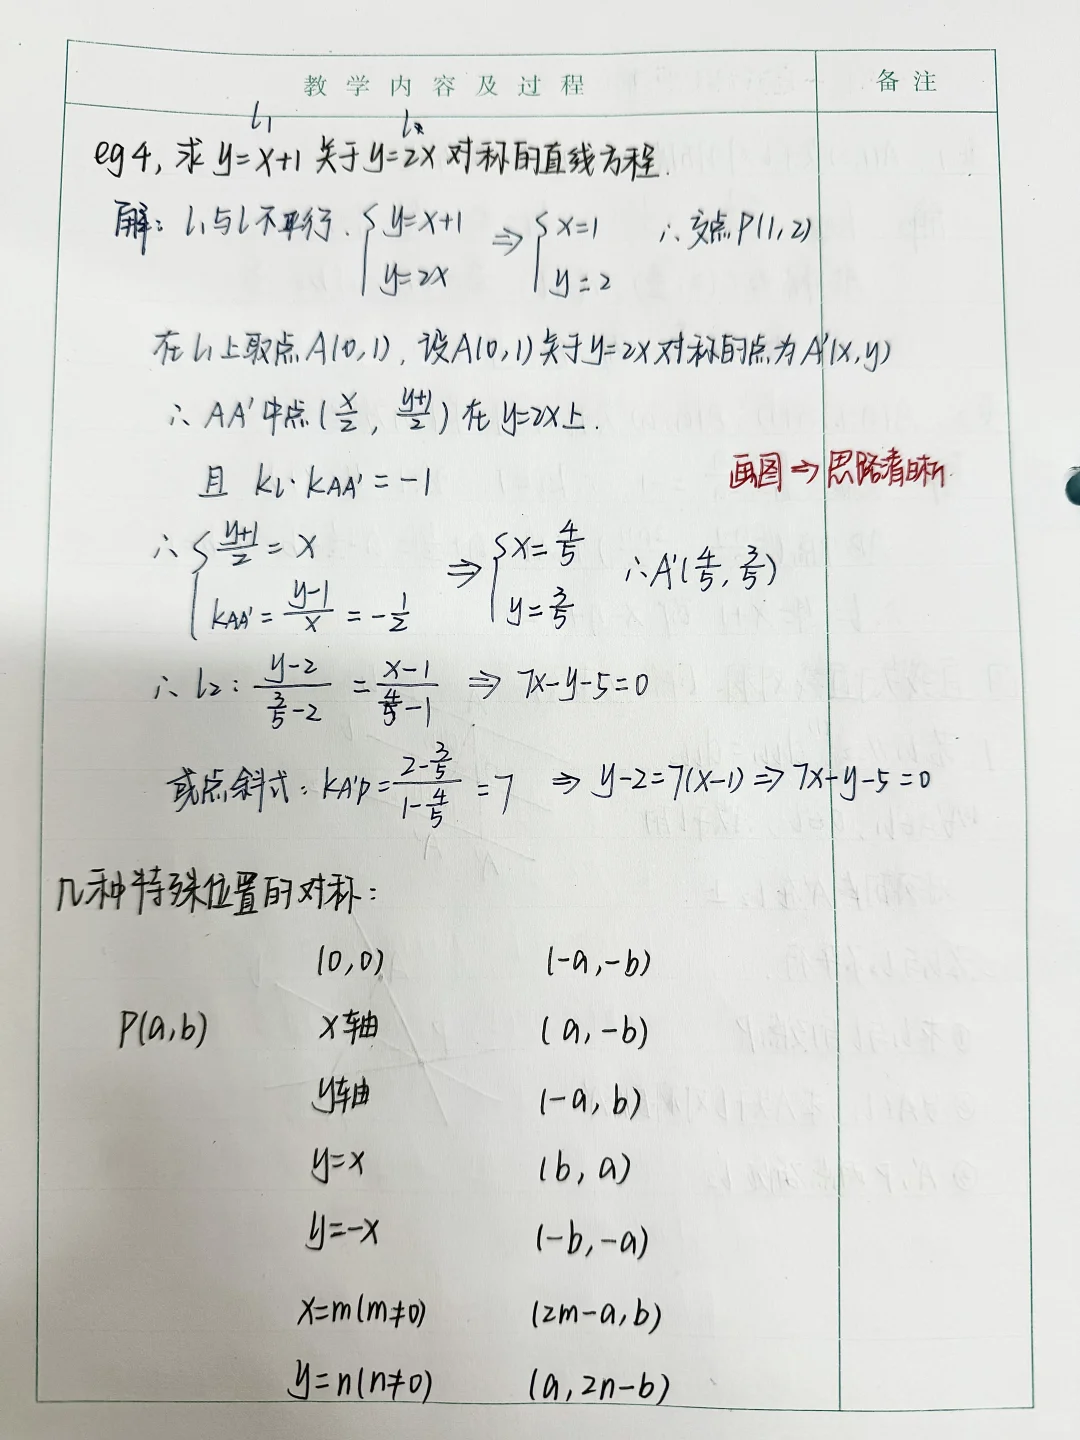 教学内容及过程 备注
l₁ l
eg4, 求 y=x+1 关于 y=2x 对称的直线方程.
解: l₁与l不平行. { y=x+1 y=2x ⇒ { x=1 y=2 ∴交点P(1,2)
在l₁上取点A(0,1), 设A(0,1)关于y=2x对称的点为A'(x,y)
∴ AA'中点(x/2, (y+1)/2)在y=2x上.
且 k_l·k_AA' = -1
画图⇒思路清晰.
∴ { (y+1)/2 = x k_AA' = (y-1)/x = -1/2 ⇒ { x=4/5 y=3/5 ∴A'(4/5, 3/5)
∴ l₂: (y-2)/(3/5-2) = (x-1)/(4/5-1) ⇒ 7x-y-5=0
或点斜式: k_A'P = (2-3/5)/(1-4/5) = 7 ⇒ y-2=7(x-1) ⇒ 7x-y-5=0
几种特殊位置的对称:
(0,0) (-a,-b)
P(a,b) x轴 (a,-b)
y轴 (-a,b)
y=x (b,a)
y=-x (-b,-a)
x=m(m≠0) (2m-a,b)
y=n(n≠0) (a,2n-b)